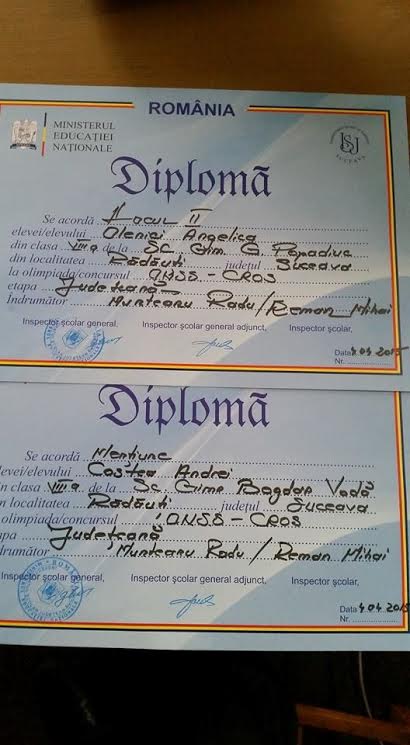 ROMÂNIA
MINISTERUL
EDUCAȚIEI
NAȚIONALE
SUCEAVA
Diplomă
Se acordă Locul II
elevei/elevului Oleniei Angelica
din clasa VIII a de la Sc. Gim. G. Popadiuc
din localitatea Rădăuți județul Suceava
la olimpiada/concursul ONSS - CROS
etapa Județeană
Îndrumător Munteanu Radu / Reman Mihai
Inspector școlar general, Inspector școlar general adjunct, Inspector școlar,
Data 4 04 2015
Nr.
Diplomă
Se acordă Mențiune
levei/elevului Costea Andrei
n clasa VIII a de la Sc. Gim Bogdan Vodă
n localitatea Rădăuți județul Suceava
olimpiada/concursul ONSS - CROS
apa Județeană
drumător Munteanu Radu / Reman Mihai
Inspector școlar general, Inspector școlar general adjunct, Inspector școlar,
Data 4 04 2015
Nr.